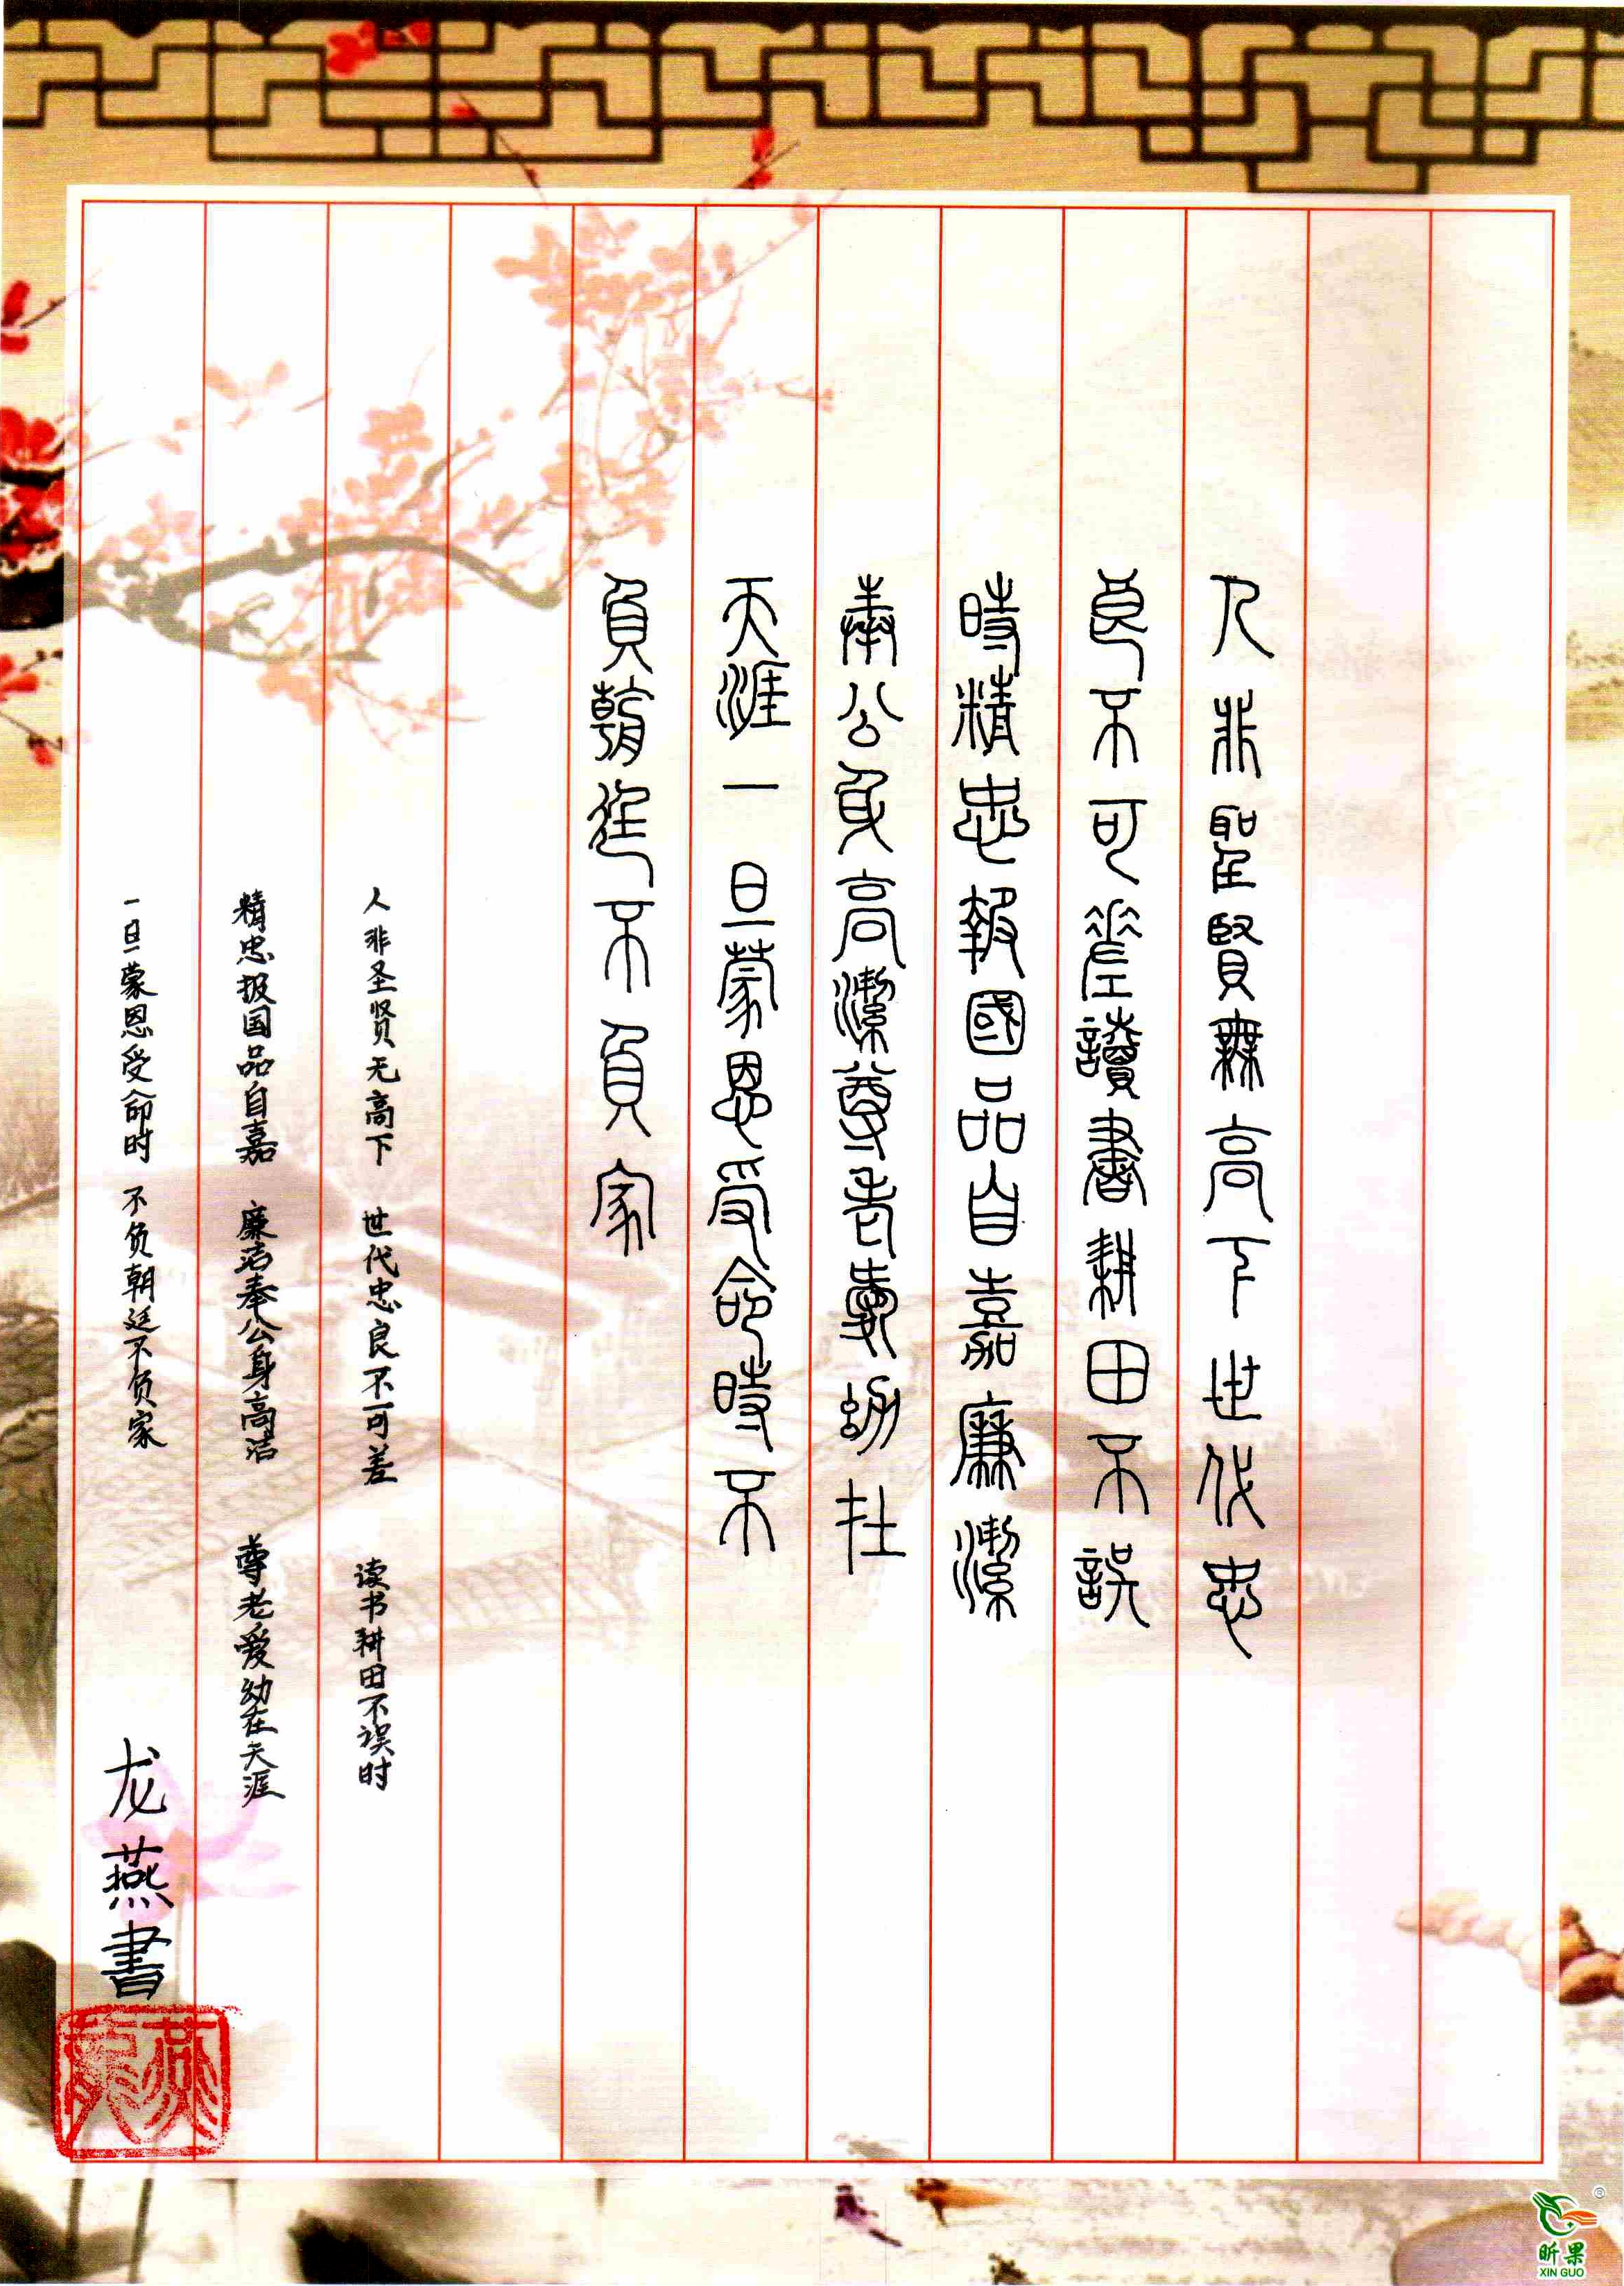 人非聖賢無高下世代忠
良不可差讀書耕田不誤
時精忠報國品自嘉廉潔
奉公身高潔尊老愛幼在
天涯一旦蒙恩受命時不
負朝廷不負家
人非圣贤无高下 世代忠良不可差 读书耕田不误时
精忠报国品自嘉 廉洁奉公身高洁 尊老爱幼在天涯
一旦蒙恩受命时 不负朝廷不负家
龙燕書
燕龍
昕果
XIN GUO